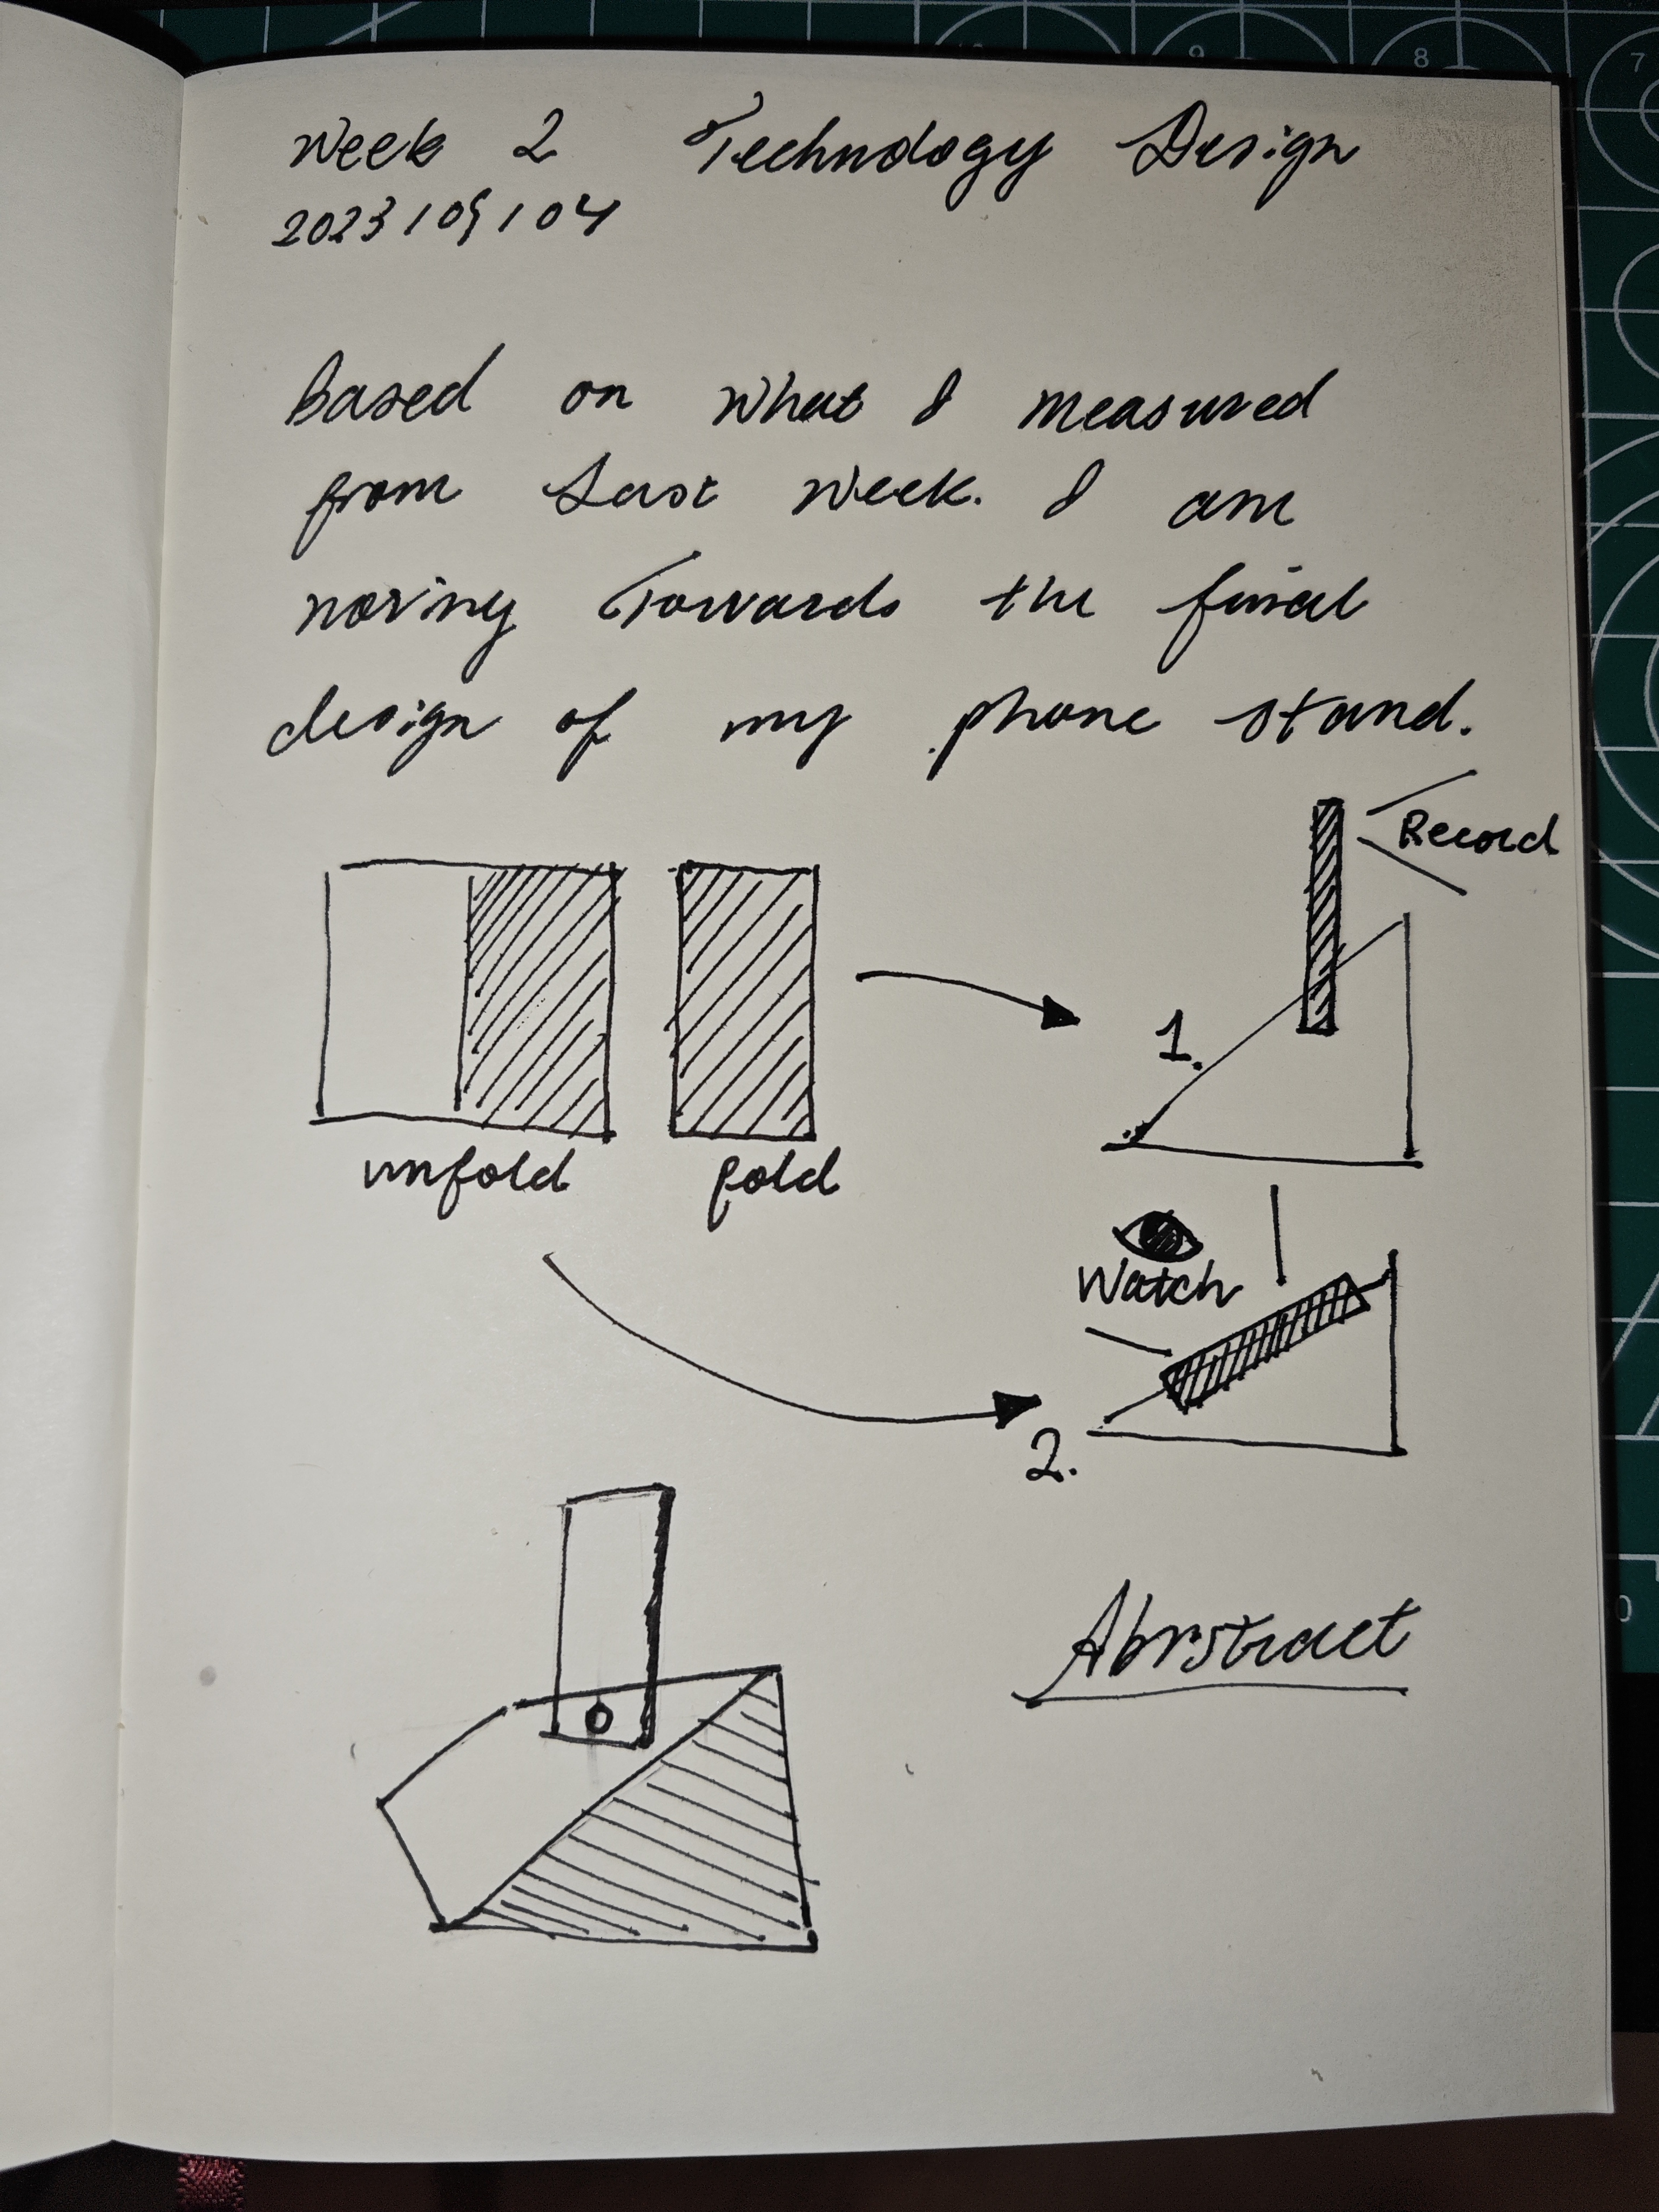 Week 2 Technology Design
2023/09/04
Based on what I measured
from Last week. I am
moving Towards the final
design of my phone stand.
Record
1.
unfold fold
Watch
2.
Abrstract
9
8
7
0